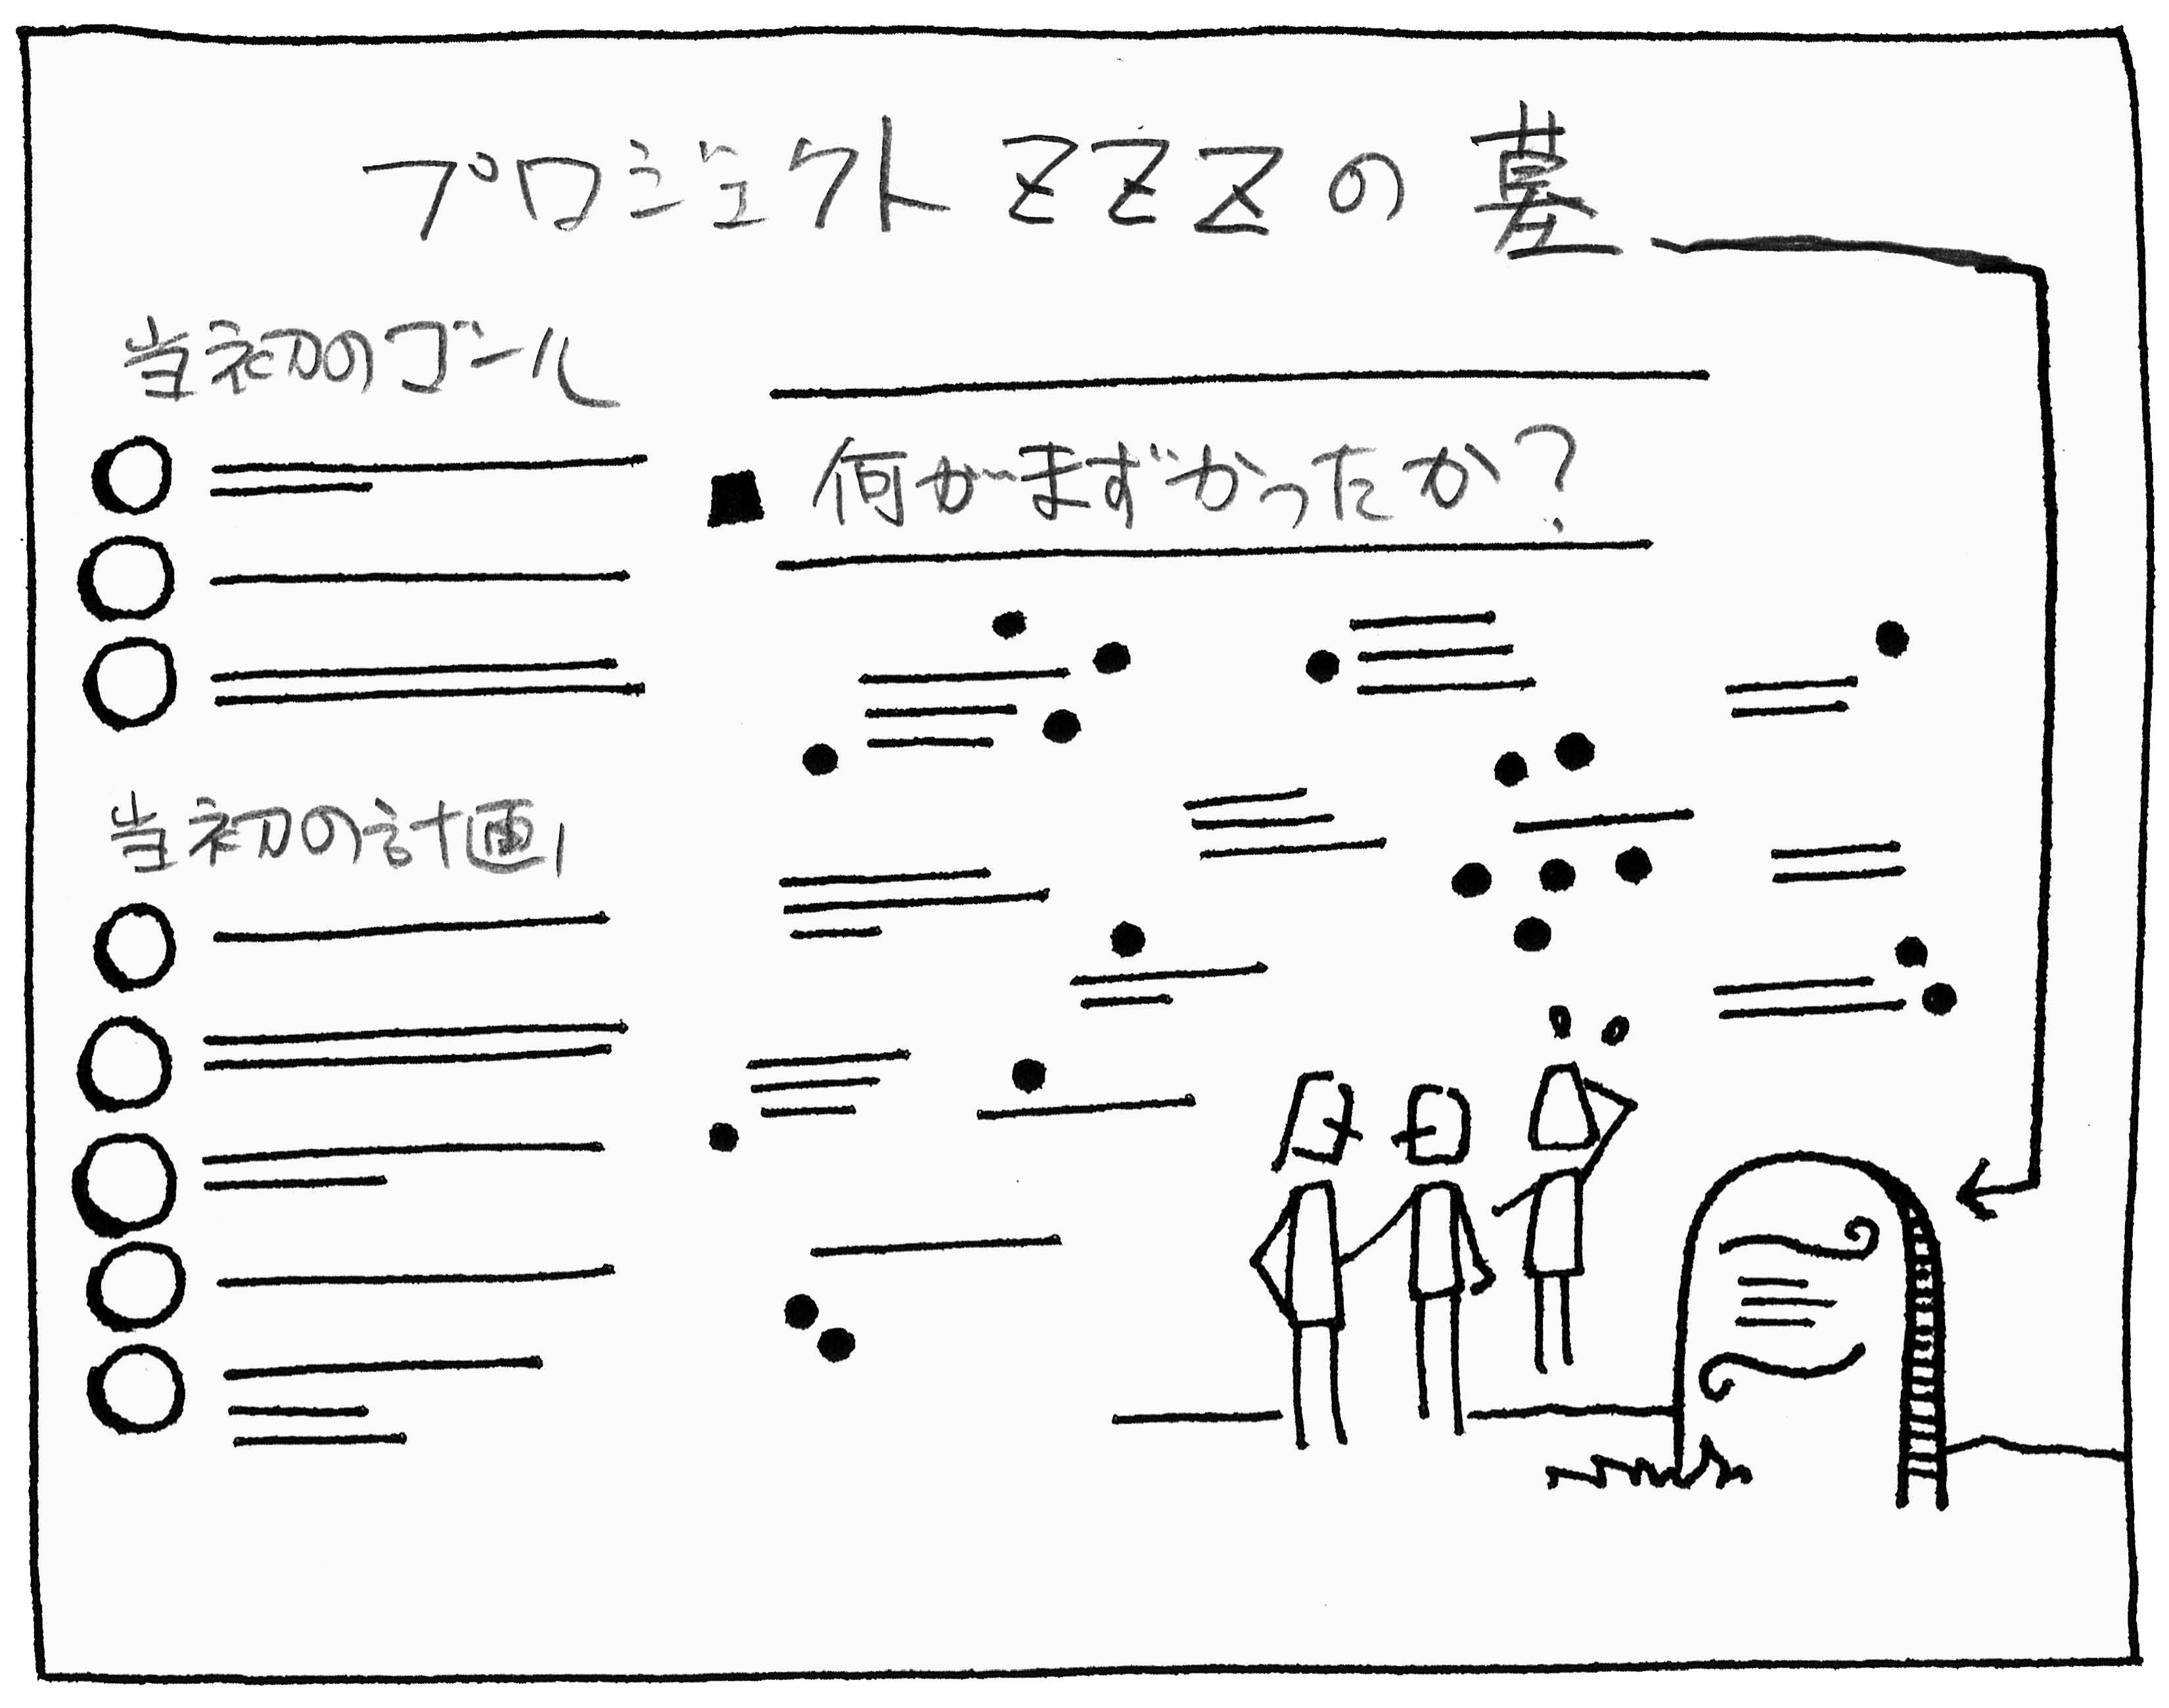 プロジェクトZZZの墓
当初のゴール
何がまずかったか?
当初の計画